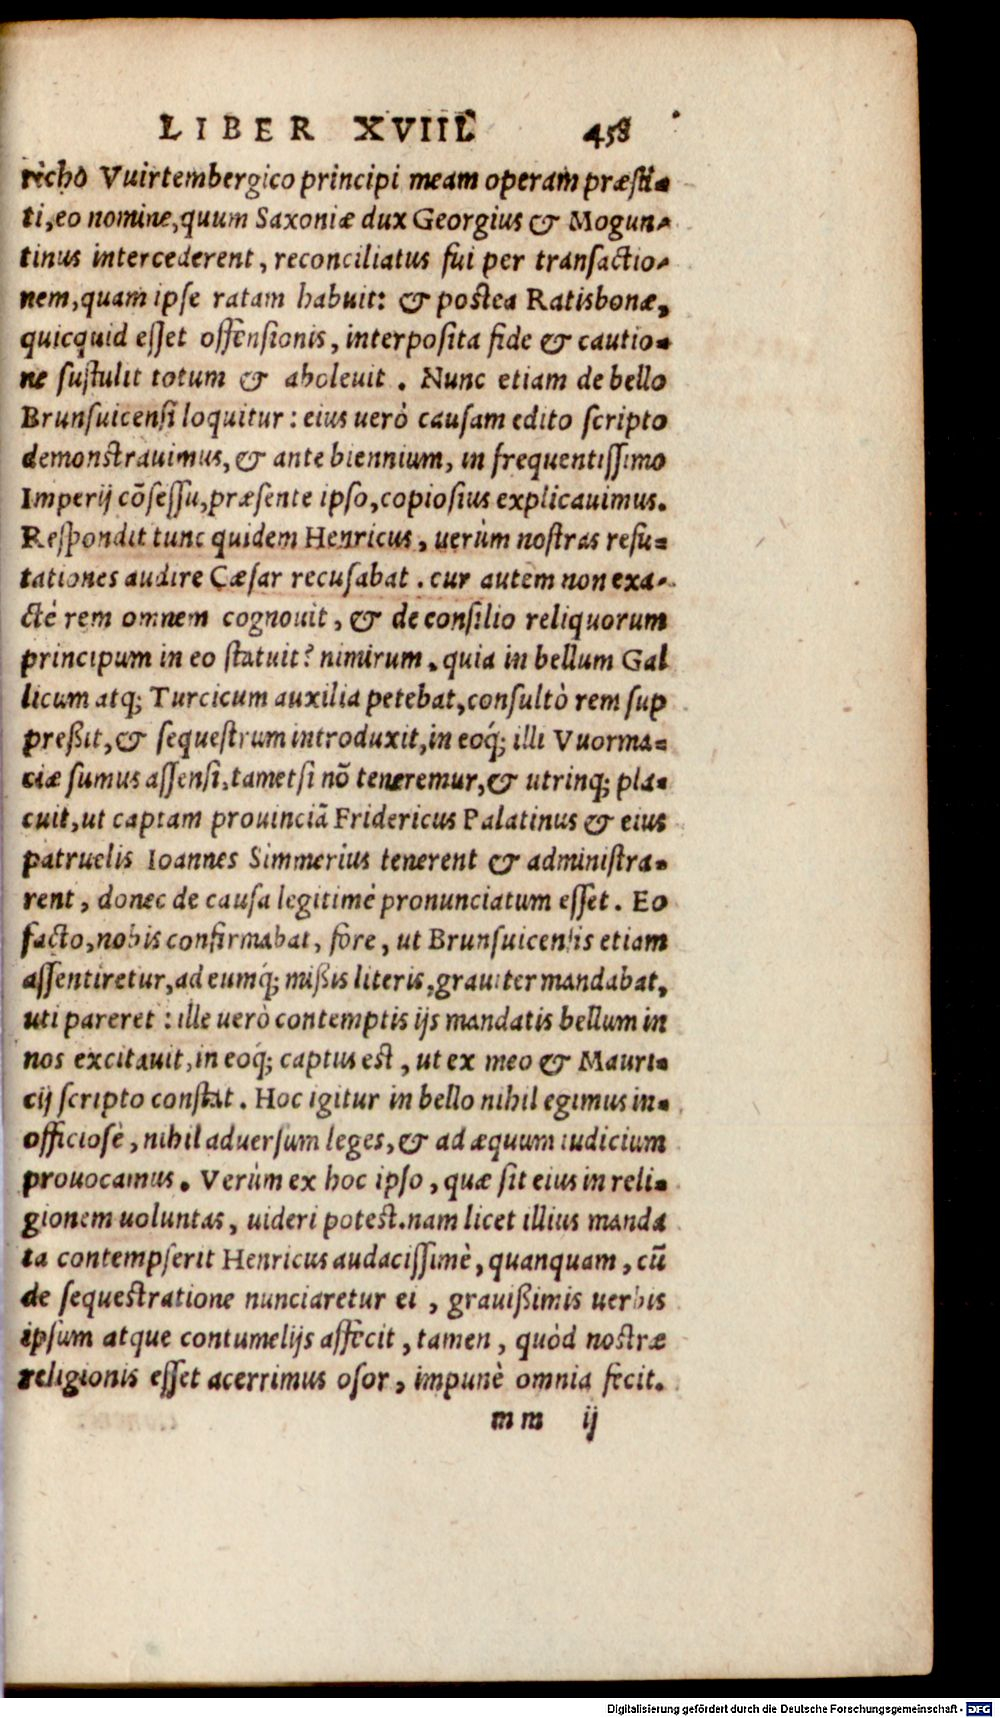 LIBER XVIII. 458
richo Vuirtembergico principi meam operam præsti-
ti, eo nomine, quum Saxoniæ dux Georgius & Mogun-
tinus intercederent, reconciliatus fui per transactio-
nem, quam ipse ratam habuit: & postea Ratisbonæ,
quicquid esset offensionis, interposita fide & cautio-
ne sustulit totum & aboleuit. Nunc etiam de bello
Brunsuicensi loquitur: eius uerò causam edito scripto
demonstrauimus, & ante biennium, in frequentissimo
Imperij cõsessu, præsente ipso, copiosius explicauimus.
Respondit tunc quidem Henricus, uerùm nostras refu-
tationes audire Cæsar recusabat. cur autem non exa-
ctè rem omnem cognouit, & de consilio reliquorum
principum in eo statuit? nimirum, quia in bellum Gal
licum atq; Turcicum auxilia petebat, consultò rem sup
preßit, & sequestrum introduxit, in eoq́; illi Vuorma-
ciæ sumus assensi, tametsi nõ teneremur, & utrinq; pla-
cuit, ut captam prouinciã Fridericus Palatinus & eius
patruelis Ioannes Simmerius tenerent & administra-
rent, donec de causa legitimè pronunciatum esset. Eo
facto, nobis confirmabat, fore, ut Brunsuicensis etiam
assentiretur, ad eumq́; mißis literis, grauiter mandabat,
uti pareret: ille uerò contemptis ijs mandatis bellum in
nos excitauit, in eoq́; captus est, ut ex meo & Mauri-
cij scripto constat. Hoc igitur in bello nihil egimus in-
officiosè, nihil aduersum leges, & ad æquum iudicium
prouocamus. Verùm ex hoc ipso, quæ sit eius in reli-
gionem uoluntas, uideri potest. nam licet illius manda
ta contempserit Henricus audacissimè, quanquam, cũ
de sequestratione nunciaretur ei, grauißimis uerbis
ipsum atque contumelijs affecit, tamen, quòd nostræ
religionis esset acerrimus osor, impunè omnia fecit.
mm ij
Digitalisierung gefördert durch die Deutsche Forschungsgemeinschaft - DFG